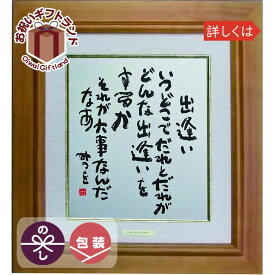 お祝いギフトランド
Oiwai Giftland
詳しくは
出逢い
いつどこでだれとだれが
どんな出逢いを
するか
それが大事なんだ
なあ
みつを
のし
包装